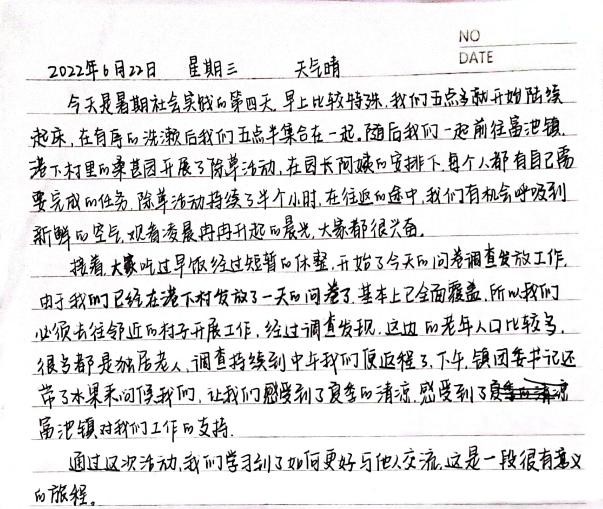 NO
DATE
2022年6月22日 星期三 天气晴
今天是暑期社会实践的第四天,早上比较特殊,我们五点多就开始陆续
起床,在有序的洗漱后我们五点半集合在一起。随后我们一起前往富池镇,
港下村里的桑葚园开展了除草活动,在园长阿姨的安排下,每个人都有自己需
要完成的任务,除草活动持续了半个小时,在往返的途中,我们有机会呼吸到
新鲜的空气,观看凌晨冉冉升起的晨光,大家都很兴奋。
接着,大家吃过早饭经过短暂的休整,开始了今天的问卷调查发放工作,
由于我们已经在港下村发放了一天的问卷了,基本上已全面覆盖,所以我们
必须去往邻近的村子开展工作,经过调查发现,这边的老年人口比较多,
很多都是独居老人,调查持续到中午我们便返程了,下午,镇团委书记还
带了水果来问候我们,让我们感受到了夏季的清凉,感受到了夏季的清凉
富池镇对我们工作的支持.
通过这次活动,我们学习到了如何更好与他人交流,这是一段很有意义
的旅程。